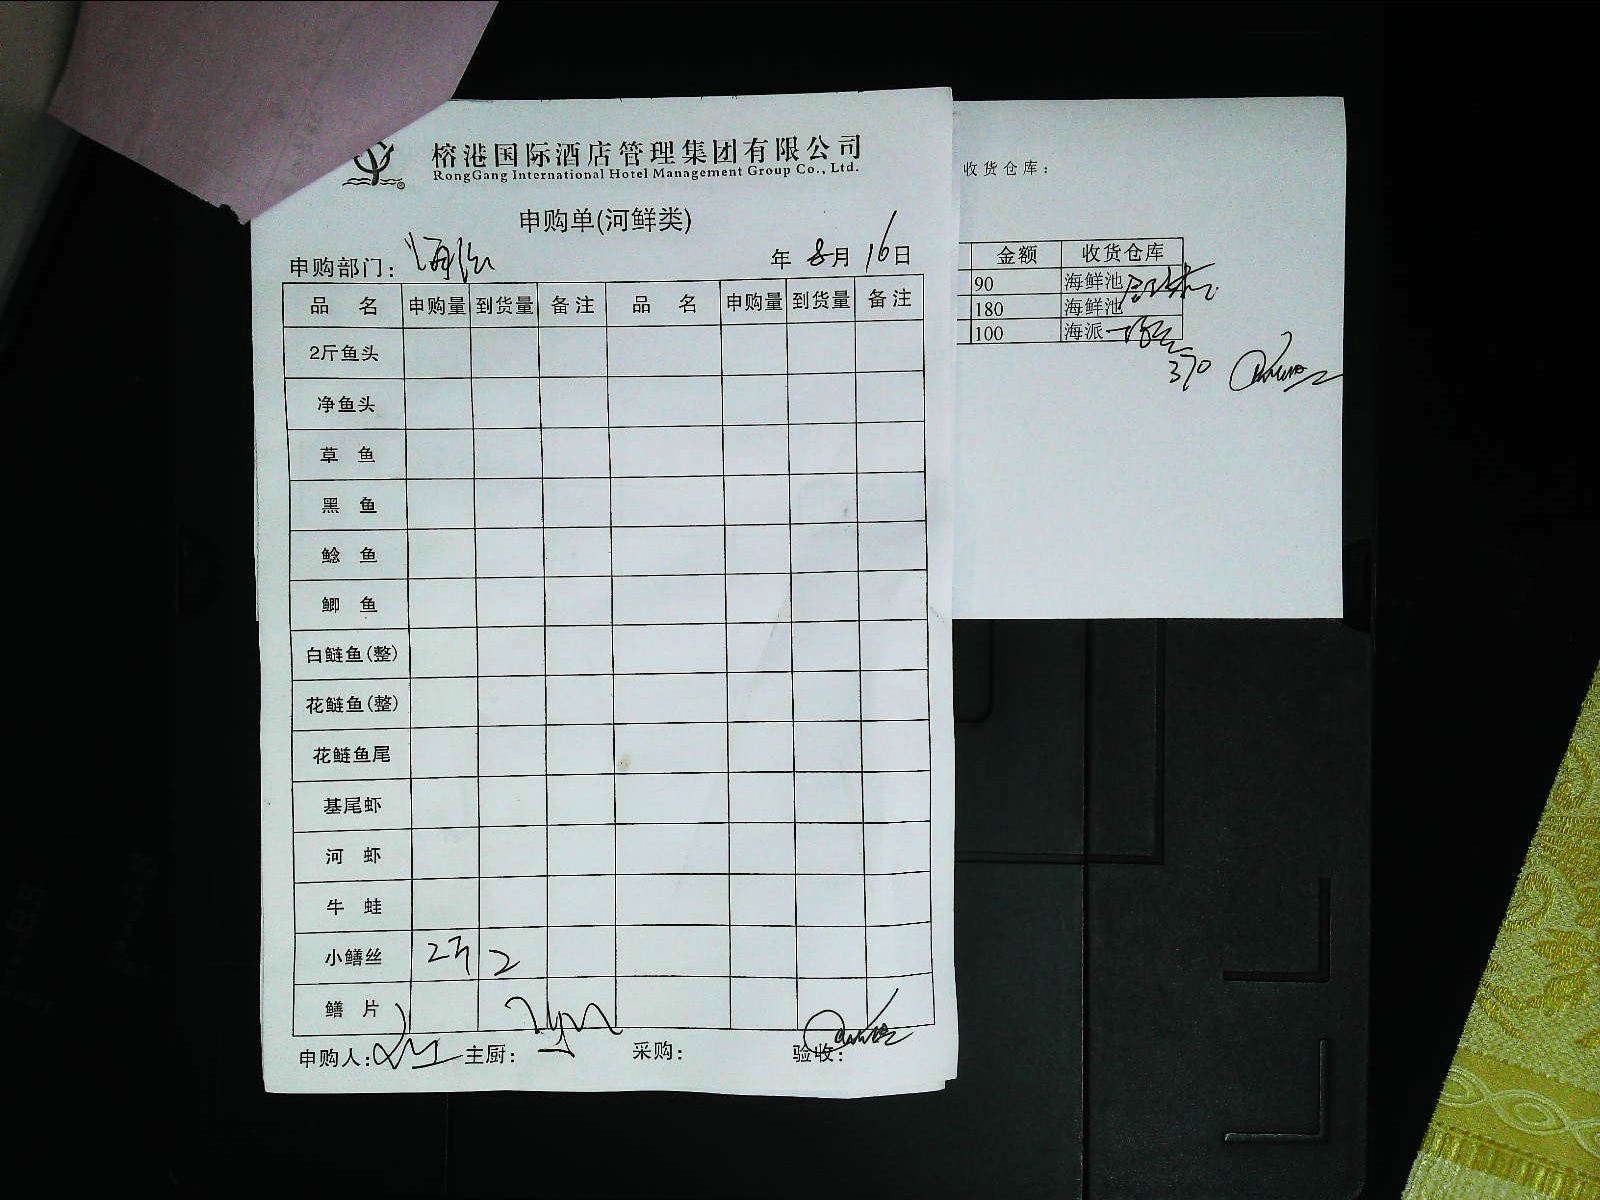 榕港国际酒店管理集团有限公司
RongGang International Hotel Management Group Co., Ltd.
申购单(河鲜类)
申购部门: 海派 年 8月 16日
品 名 申购量 到货量 备注 品 名 申购量 到货量 备注
2斤鱼头
净鱼头
草 鱼
黑 鱼
鲶 鱼
鲫 鱼
白鲢鱼(整)
花鲢鱼(整)
花鲢鱼尾
基尾虾
河 虾
牛 蛙
小鳝丝 2斤 2
鳝 片
申购人: 主厨: 采购: 验收:
收货仓库:
金额 收货仓库
90 海鲜池
180 海鲜池
100 海派
370